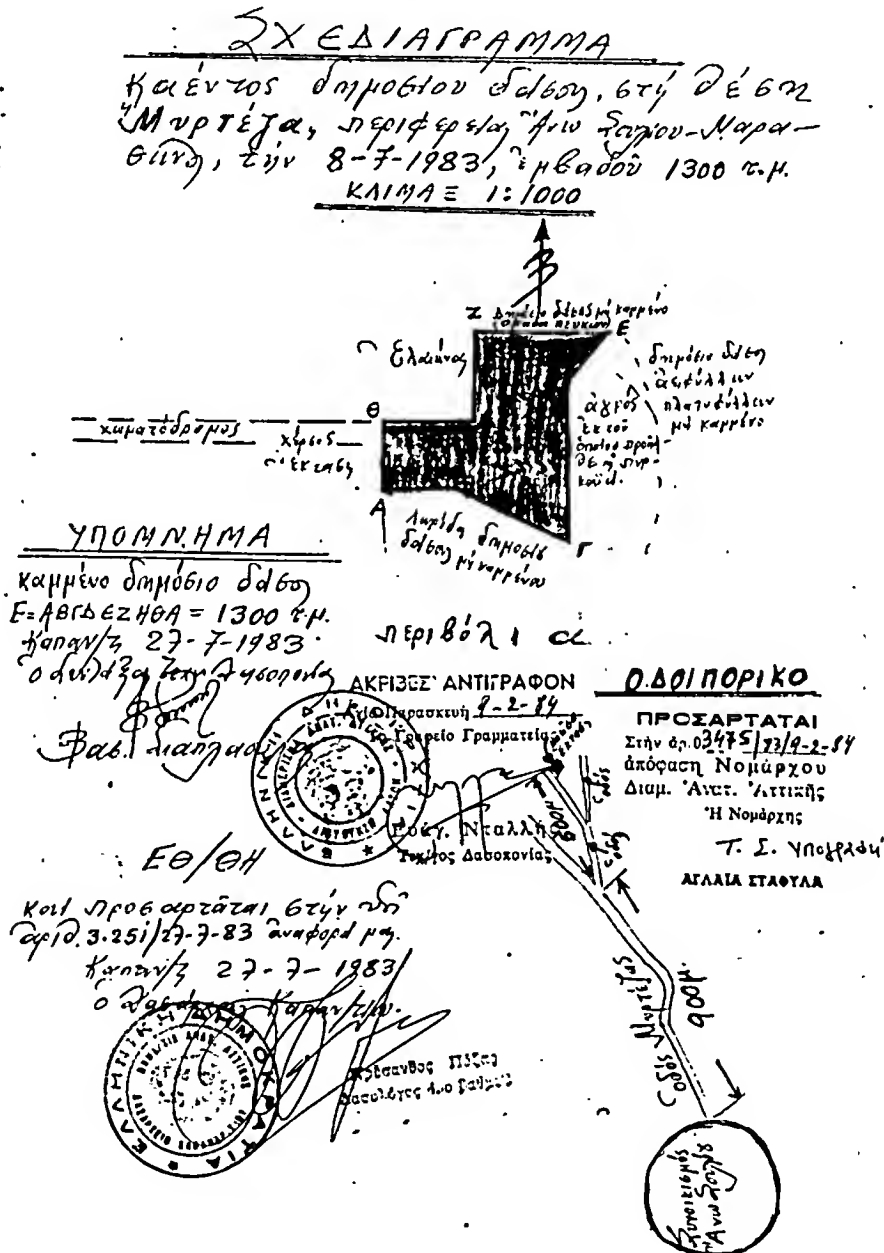 ΣΧΕΔΙΑΓΡΑΜΜΑ
Καέντος δημοσίου δάσους, στή θέση
"Μυρτέζα, περιφερείας Ἄνω Σουλίου-Μαρα-
θῶνος, τήν 8-7-1983, ἐμβαδοῦ 1300 τ.μ.
ΚΛΙΜΑΞ 1:1000
Ζ Δημόσιο δάσος μή καμμένο Ε
(ομάδα πεύκων)
Ἐλαιώνας
δημόσιο δάσος
ἀειφύλλων
πλατυφύλλων
μή καμμένο
ἀγρός
ἐκ τοῦ
ὁποίου προῆλ-
θε ἡ πυρ-
καϊά.
Θ
χωματόδρομος
χέρσος
ἔκταση
Α
Γ
Λωρίδα δημοσίου
δάσους μή καμμένου
ΥΠΟΜΝΗΜΑ
καμμένο δημόσιο δάσος
Ε=ΑΒΓΔΕΖΗΘΑ = 1300 τ.μ.
Καπαν/τι 27-7-1983
περιβόλια
Βας.
ΑΚΡΙΒΕΣ ΑΝΤΙΓΡΑΦΟΝ
Ἁγία Παρασκευή 9-2-84
Γραφείο Γραμματείας
Νταλλή
Τεχ/τος Δασοκονίας
Ο.ΔΟΙΠΟΡΙΚΟ
ΠΡΟΣΑΡΤΑΤΑΙ
Στήν ἀρ. 03475/83/9-2-84
ἀπόφαση Νομάρχου
Διαμ. Ἀνατ. Ἀττικῆς
Ἡ Νομάρχης
Τ. Σ. Υπογραφή
ΑΓΛΑΙΑ ΣΤΑΦΥΛΑ
600μ
ὁδός
ὁδός
ΕΘ/ΘΗ
Καί προσαρτᾶται στήν ὑπ'
ἀριθ. 3.251/27-7-83 ἀναφορά μας.
Καπαν/τι 27-7-1983
Ο Δασάρχης Καπαν/τίου.
ΕΛΛΗΝΙΚΗ ΔΗΜΟΚΡΑΤΙΑ
Χρύσανθος
Δασολόγος 4ου βαθμοῦ
ὁδός Μυρτέζας
900μ.
Συνοικισμός
"Ανω Σουλίου